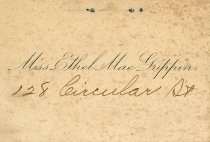 Miss Ethel Mae Grippin.
128 Circular St